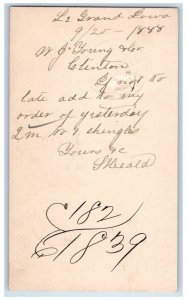 Le Grand Iowa
9/20 - 1888
W J Young & Co
Clinton
If not to
late add to my
order of yesterday
2 M No 1 shingles
Yours &c
S Heald
182
61839